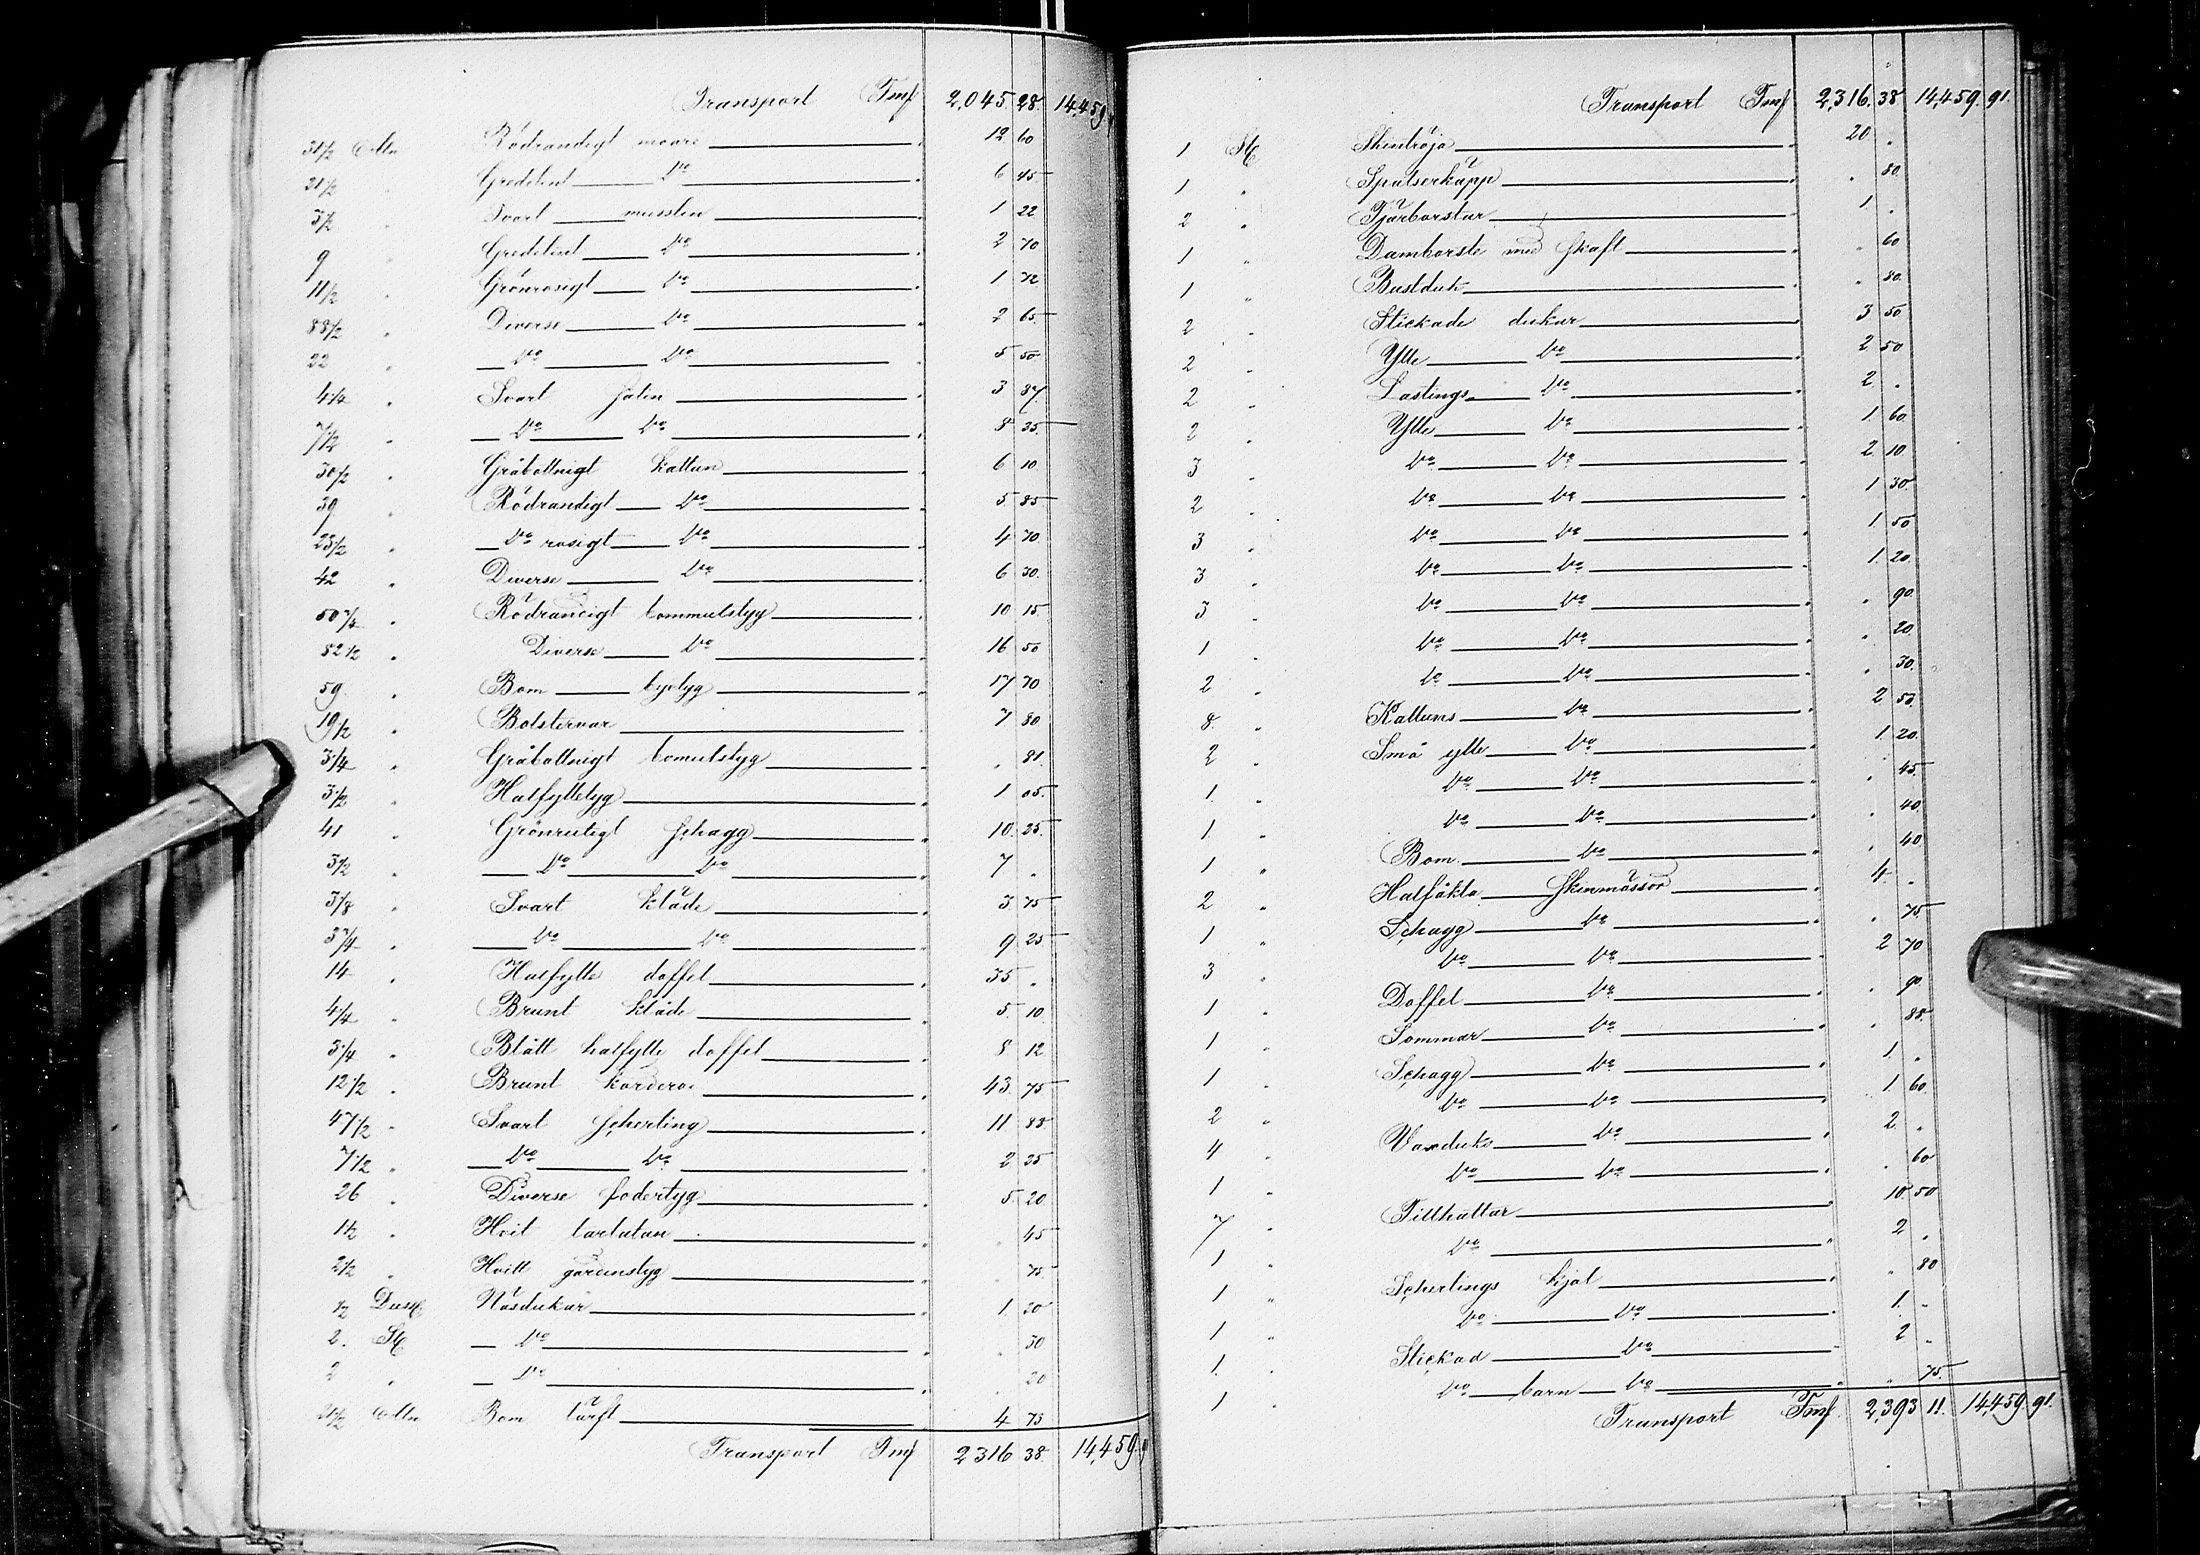 Transport Fmf 2,045. 28. 14,459
31 1/2 Alln Rödrandigt moaré 12 60
21 1/2 " Gredelint do 6 45
3 1/2 " Svart musslin 1 22
9 " Gredelint do 2 70
11 1/2 " Grönrosigt do 1 72
88 1/2 " Diverse do 2 65
22 " do do 5 50
4 1/4 " Svart satin 3 87
7 1/2 " do do 8 25
30 1/2 " Gråbottnigt kattun 6 10
39 " Rödrandigt do 5 85
23 1/2 " do rosigt do 4 70
42 " Diverse do 6 30
50 3/4 " Rödrandigt bommulstyg 10 15
82 1/2 " Diverse do 16 50
59 " Bom byxtyg 17 70
19 1/2 " Bolstervar 7 80
3 1/4 " Gråbottnigt bomulstyg " 81
3 1/2 " Halfylletyg 1 05
41 " Grönrutigt schagg 10 25
3 1/2 " do do 7 "
3/8 " Svart kläde 3 75
3 3/4 " do do 9 25
14 " Halfylle doffel 35 "
4/4 " Brunt kläde 5 10
3 1/4 " Blått halfylle doffel 8 12
12 1/2 " Brunt korderoi 43 75
47 1/2 " Svart scherting 11 88
7 1/2 " do do 2 25
26 " Diverse fodertyg 5 20
1 1/2 " Hvit tarlatan " 45
2 1/2 " Hvitt gardinstyg " 75
1/2 Dus Näsdukar 1 20
2 St do " 30
2 " do " 20
Alln Bom lärft 4 75
Transport Fmf 2316 38 14,459.9
Transport Fmf 2,316. 38 14,459. 91.
1 St Skintröja 20 "
1 " Spatserkäpp " 80
2 " Tjärborstar 1 "
1 " Damborste med skaft " 60
1 " Bustduk " 80
2 " Stickade dukar 3 50
2 " Ylle do 2 50
2 " Lastings do 2 "
2 " Ylle do 1 60
3 " do do 2 10
2 " do do 1 30
3 " do do 1 50
3 " do do 1 20
3 " do do " 90
1 " do do " 20
2 " do do " 30
8 " Kattuns do 2 50
2 " Små ylle do 1 20
1 " do do " 45
1 " do do " 40
1 " Bom do " 40
2 " Halfäkta skinmössor 4 "
1 " Schagg do " 75
3 " do do 2 70
1 " Doffel do " 90
1 " Sommar do " 88
1 " Schagg do 1 "
2 " do do 1 60
4 " Vaxduks do 2 "
1 " do do " 60
7 " Filthattar 10 50
1 " do 2 "
1 " Schertings kjol " 80
1 " do do 1 "
1 " Stickad do 2 "
1 " do barn do " 75
Transport Fmf 2,393 11. 14,459 91.